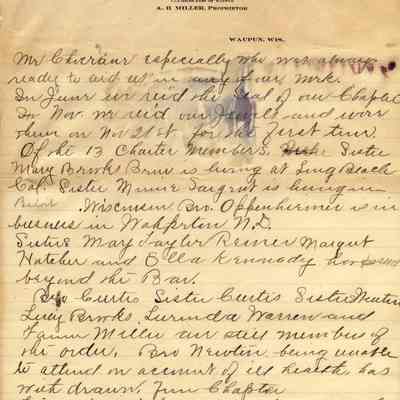 A. H. MILLER, PROPRIETOR
WAUPUN, WIS.
Mr especially who was always
ready to aid us in any of our work.
In June we rec'd the Seal of our Chapter
In Nov. we rec'd our Jewels and wore
them on Nov 21st for the first time.
Of the 13 Charter Members. Sister
Mary Brooks is living at Long Beach
Cal. Sister Minnie Sargent is living in
Beloit Wisconsin Bro. Oppenheimer is in
business in Wahpeton N.D.
Sisters May Taylor Margret
Hatcher and Ella Kennedy have passed
beyond the Bar.
Bro Curtis Sister Curtis Sister Newton
Lucy Brooks Lurinda Warren and
Fannie Miller are still members of
the order. Bro Newton being unable
to attend on account of ill health has
with drawn. from Chapter